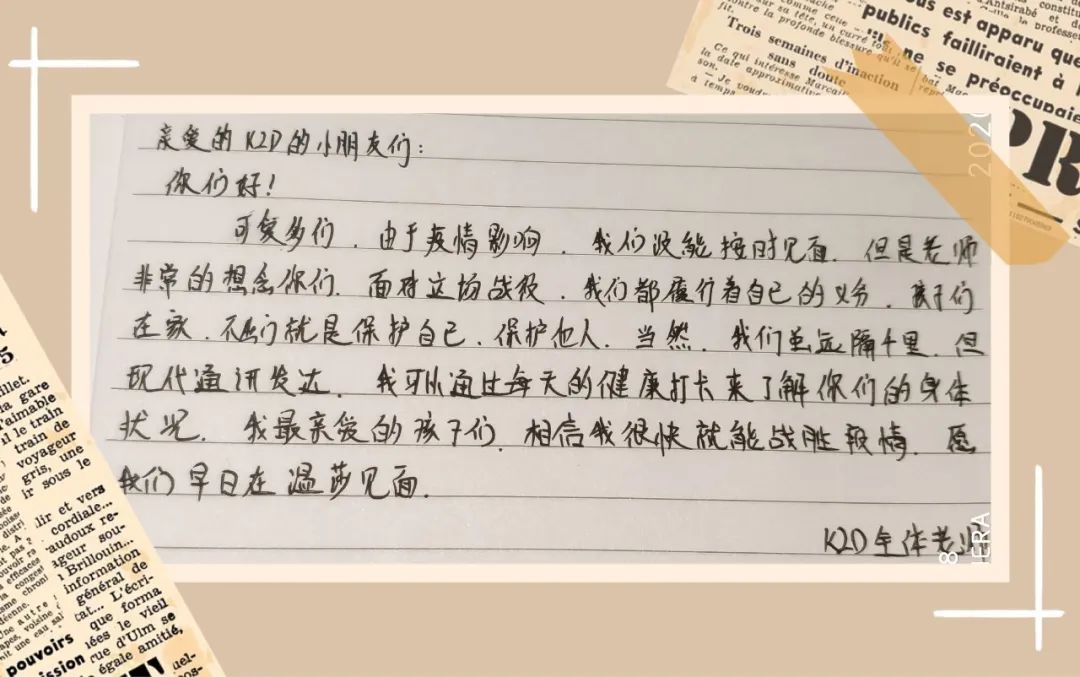 亲爱的K2D的小朋友们：
你们好！
可爱多们，由于疫情影响，我们没能按时见面，但是老师
非常的想念你们。面对这场战役，我们都履行着自己的义务，孩子们
在家，不出门就是保护自己，保护他人。当然，我们虽远隔千里，但
现代通讯发达，我可以通过每天的健康打卡来了解你们的身体
状况。我最亲爱的孩子们，相信我很快就能战胜疫情，愿
我们早日在温莎见面。
K2D全体老师
Antsirabé et
us est apparu que
publics failliraient à
ne se préoccupaie
comme cette
sur sa tête, un carré
contre la profonde blessure qu'il
Trois semaines d'inaction
sans doute
Ce qui intéresse
la date approximative
son.
Je voud
à temps
PR
202
8
ERA
illet.
la gare
l'aimable
il le train
train de
voyageur
gris, une
ir sous le
lir et vers
cordiale...
audoux re-
ageur sou-
Brillouin...
information
général de
tat... L'écri-
que forma
iées le vieil
rue d'Ulm se
égale amitié,
pouvoirs
ission
uel-